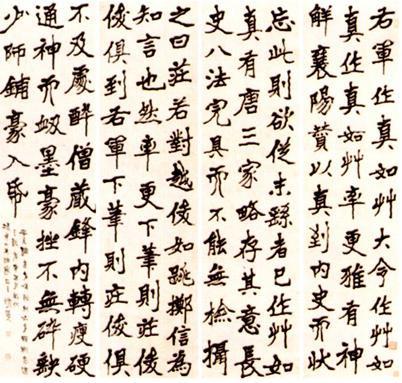 右軍作真如艸大令作艸如
真作真如艸率更雅有神
解襄陽贊以真到內史而狀
忘此則欲從末蹊者已作艸如
真有唐三家略存其意長
史八法完具而不能無檢攝
之曰莊若對越俊如跳擲信為
知言也然率更下筆則莊
俊俱到右軍下筆則莊俊俱
不及處醉僧藏鋒內轉瘦硬
通神而衂墨豪挫不無碎缺
少師鋪豪入帋